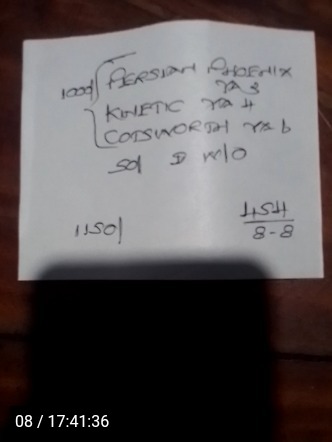 1000/ PERSIAN PHOENIX
R 3
KINETIC R 4
COTSWORTH R 6
50/ D W/O
1150/
454
8-8
08 / 17:41:36